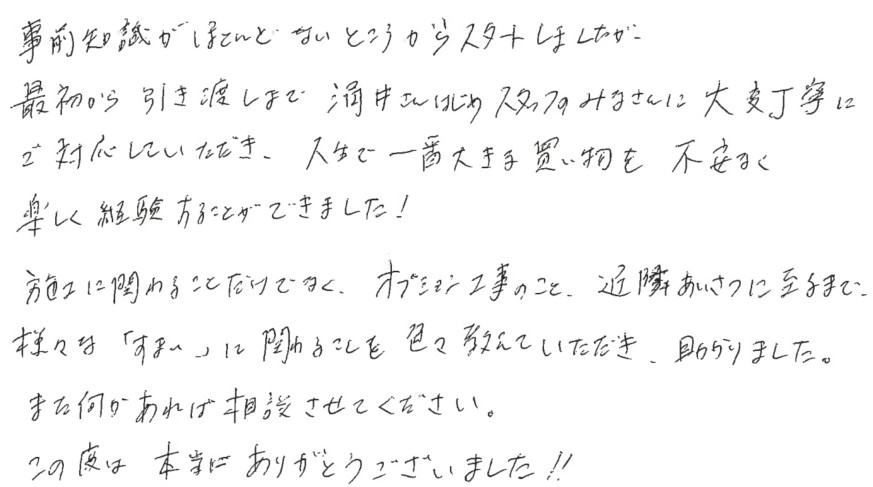 事前知識がほとんどないところからスタートしましたが、
最初から引き渡しまで 涌井さんはじめスタッフのみなさんに大変丁寧に
ご対応していただき、人生で一番大きな買い物を不安なく
楽しく経験することができました!
施工に関わることだけでなく、オプション工事のこと、近隣あいさつに至るまで、
様々な「すまい」に関わることを色々教えていただき、助かりました。
また何かあれば相談させてください。
この度は本当にありがとうございました!!